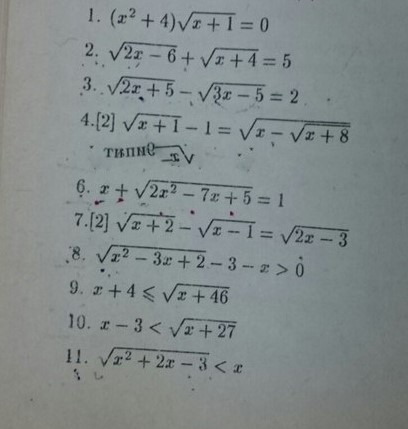 1. (x² + 4)√(x + 1) = 0
2. √(2x − 6) + √(x + 4) = 5
3. √(2x + 5) − √(3x − 5) = 2
4.[2] √(x + 1) − 1 = √(x − √(x + 8))
6. x + √(2x² − 7x + 5) = 1
7.[2] √(x + 2) − √(x − 1) = √(2x − 3)
8. √(x² − 3x + 2) − 3 − x > 0
9. x + 4 ⩽ √(x + 46)
10. x − 3 < √(x + 27)
11. √(x² + 2x − 3) < x